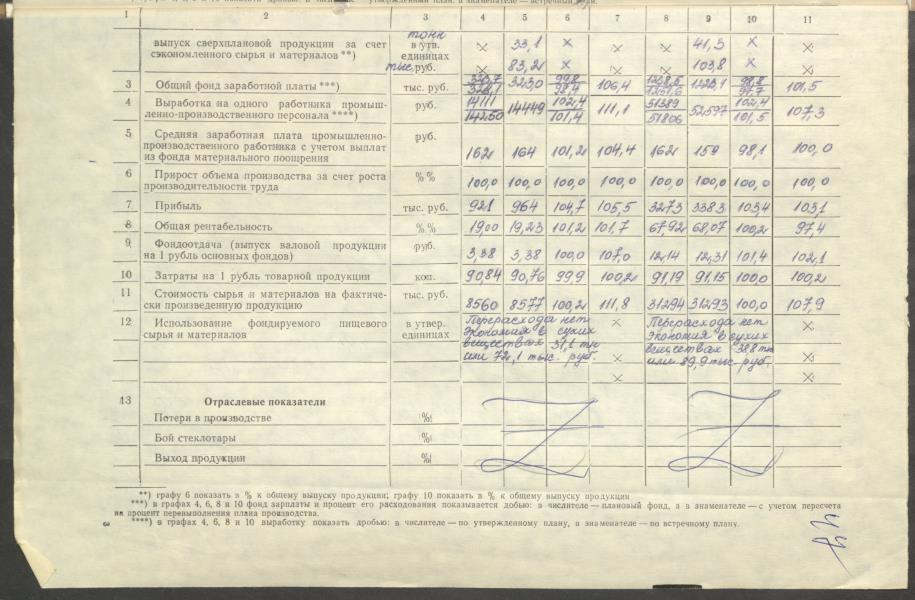 1 2 3 4 5 6 7 8 9 10 11
тонн
выпуск сверхплановой продукции за счет в утв. × 33,1 × × × 41,5 × ×
сэкономленного сырья и материалов **) единицах
тыс. руб. × 83,2 × × × 103,8 × ×
3 Общий фонд заработной платы ***) тыс. руб. 323,0 106,4 101,5
4 Выработка на одного работника промыш- руб. 14111 14449 102,4 111,1 51389 52597 102,4 107,3
ленно-производственного персонала ****) 14250 101,4 51806 101,5
5 Средняя заработная плата промышленно- руб.
производственного работника с учетом выплат 162 164 101,2 104,4 162 159 98,1 100,0
из фонда материального поощрения
6 Прирост объема производства за счет роста %% 100,0 100,0 100,0 100,0 100,0 100,0 100,0 100,0
производительности труда
7 Прибыль тыс. руб. 921 964 104,7 105,5 3273 3383 103,4 103,1
8 Общая рентабельность %% 19,00 19,23 101,2 101,7 67,92 68,07 100,2 97,4
9 Фондоотдача (выпуск валовой продукции руб.
на 1 рубль основных фондов) 3,38 3,38 100,0 107,0 12,14 12,31 101,4 102,1
10 Затраты на 1 рубль товарной продукции коп. 90,84 90,76 99,9 100,2 91,19 91,15 100,0 100,2
11 Стоимость сырья и материалов на фактиче- тыс. руб.
ски произведенную продукцию 8560 8577 100,2 111,8 31294 31293 100,0 107,9
12 Использование фондируемого пищевого в утвер. Перерасхода нет × Перерасхода нет ×
сырья и материалов единицах Экономия в сухих Экономия в сухих
веществах 31,1 тн веществах 38,8 тн
или 72,1 тыс. руб. × или 89,9 тыс. руб. ×
× ×
13 Отраслевые показатели
Потери в производстве %
Бой стеклотары %
Выход продукции %
**) графу 6 показать в % к общему выпуску продукции; графу 10 показать в % к общему выпуску продукции
***) в графах 4, 6, 8 и 10 фонд зарплаты и процент его расходования показывается добью: в числителе — плановый фонд, а в знаменателе — с учетом пересчета
на процент перевыполнения плана производства.
****) в графах 4, 6, 8 и 10 выработку показать дробью: в числителе — по утвержденному плану, а знаменателе — по встречному плану.
3